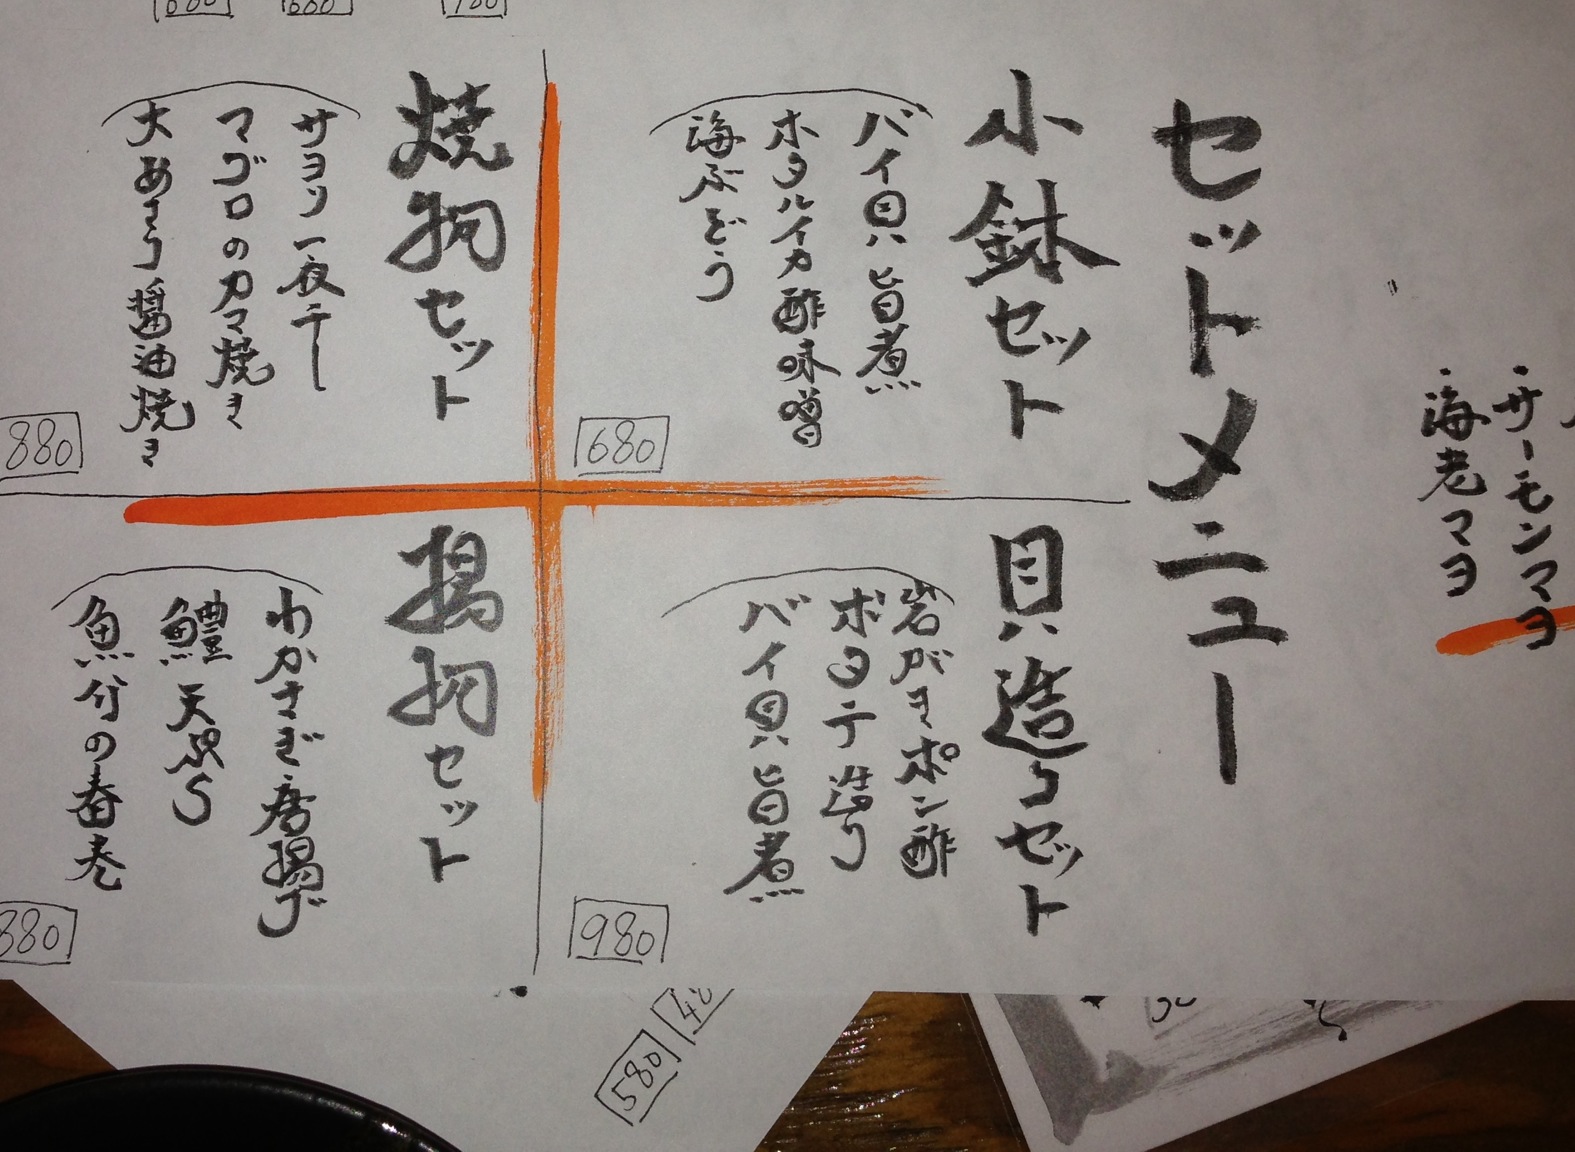 ・サーモンマヨ
・海老マヨ
セットメニュー
小鉢セット
バイ貝旨煮
ホタルイカ酢味噌
海ぶどう
680
貝造りセット
岩がきポン酢
ホタテ造り
バイ貝旨煮
980
焼物セット
サヨリ一夜干し
マグロのカマ焼き
大あさり醤油焼き
880
揚物セット
わかさぎ唐揚げ
鱧天ぷら
魚介の春巻
880
580